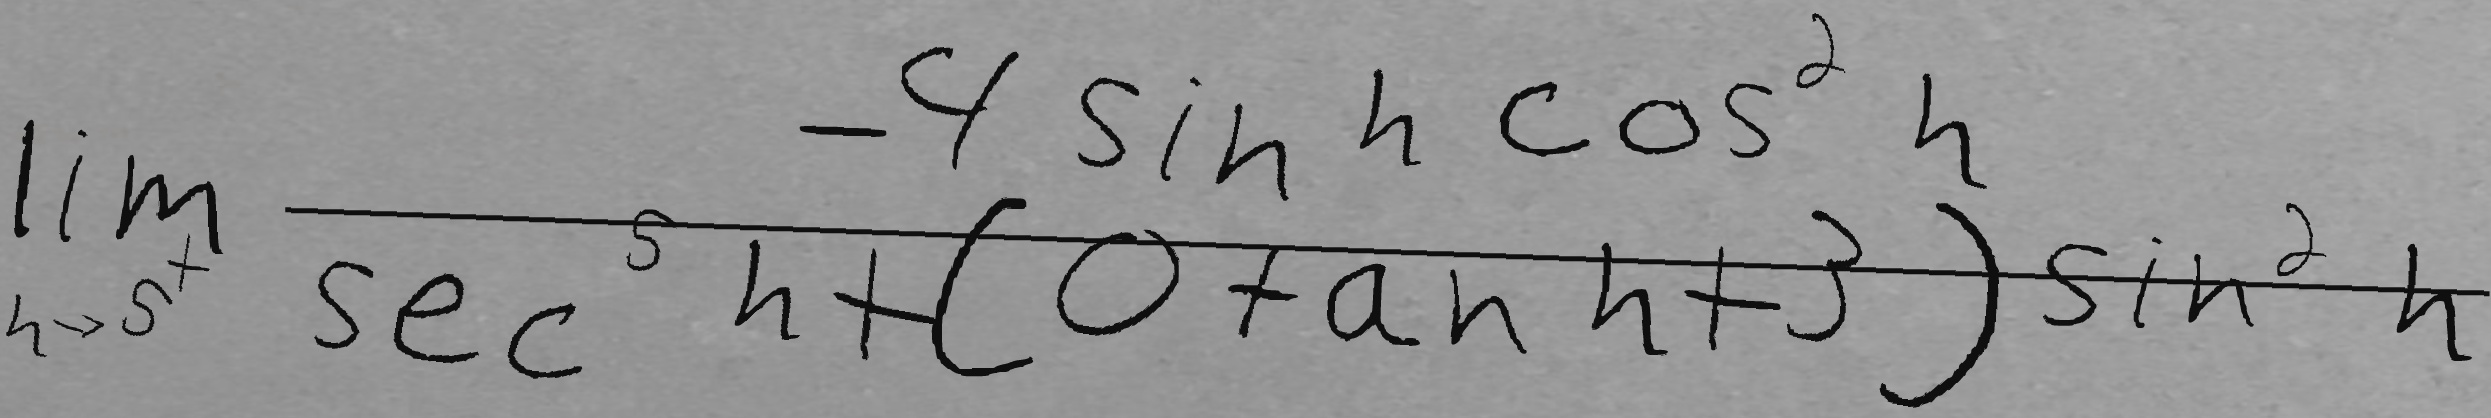 \lim_{h \to 5^{+}} \frac{-4 \sin h \cos^{2} h}{\sec^{5} h + (0 \tan h + 3) \sin^{2} h}